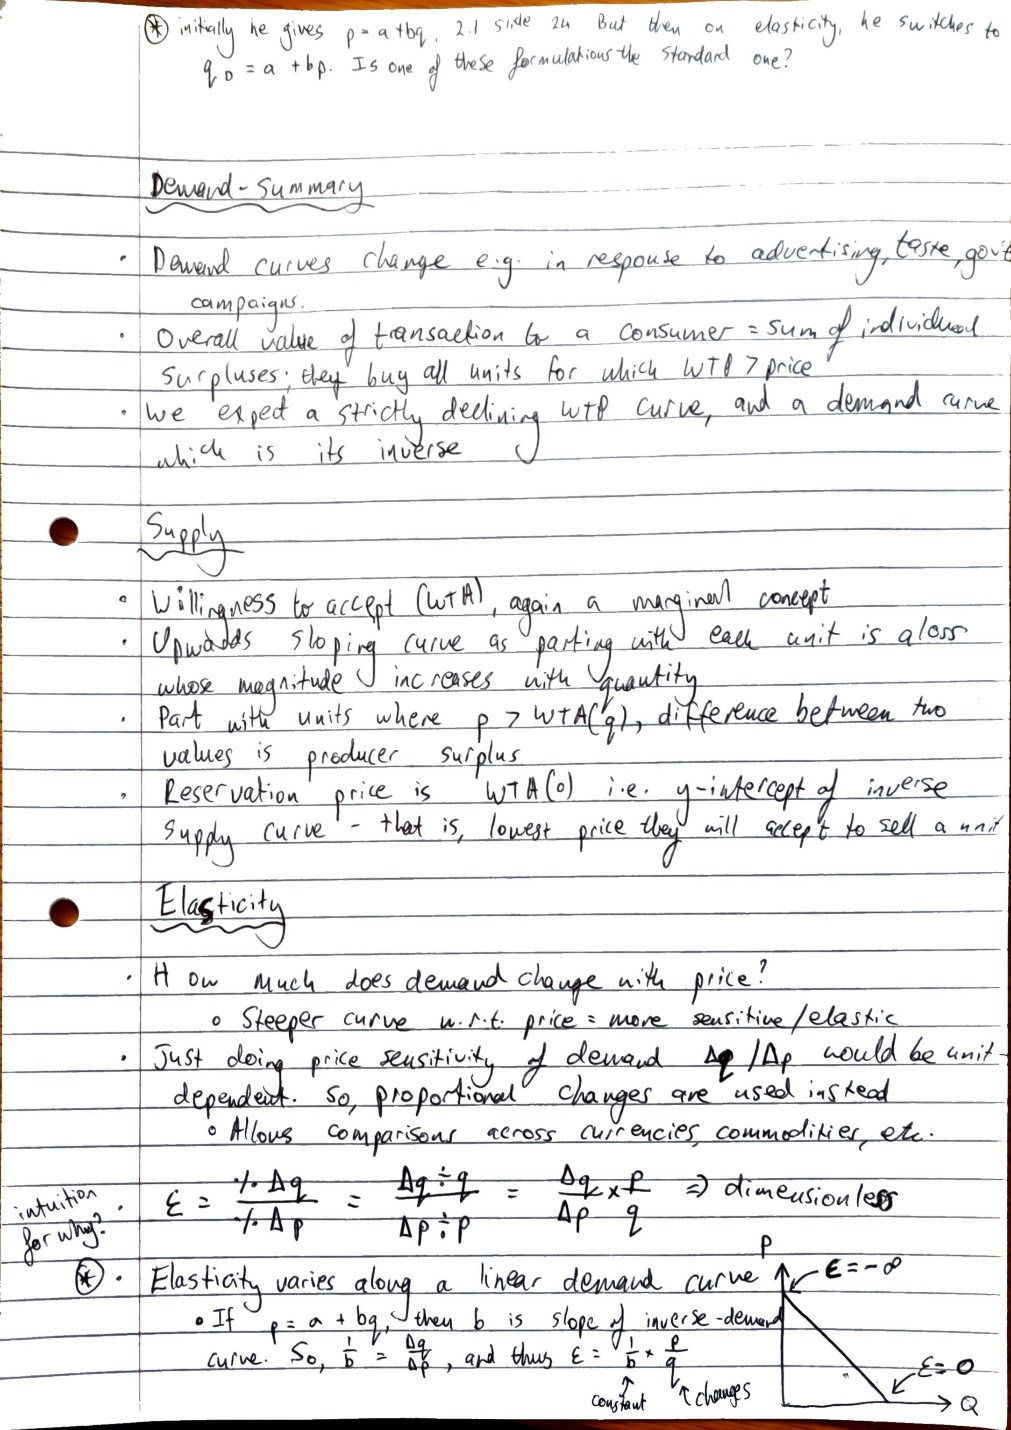 ⊛ initially he gives p = a + bq, 2.1 slide 24 But then on elasticity, he switches to
q_D = a + bp. Is one of these formulations the standard one?
Demand - Summary
• Demand curves change e.g. in response to advertising, taste, gov't
campaigns.
• Overall value of transaction to a consumer = sum of individual
surpluses; they buy all units for which WTP > price
• We expect a strictly declining WTP curve, and a demand curve
which is its inverse
Supply
• Willingness to accept (WTA), again a marginal concept
• Upwards sloping curve as parting with each unit is a loss
whose magnitude increases with quantity
• Part with units where p > WTA(q), difference between two
values is producer surplus
• Reservation price is WTA(0) i.e. y-intercept of inverse
supply curve - that is, lowest price they will accept to sell a unit
Elasticity
• How much does demand change with price?
◦ Steeper curve w.r.t. price = more sensitive/elastic
• Just doing price sensitivity of demand Δq/Δp would be unit-
dependent. So, proportional changes are used instead
◦ Allows comparisons across currencies, commodities, etc.
intuition for why?
• ε = % Δq / % Δp = Δq ÷ q / Δp ÷ p = Δq/Δp × p/q ⇒ dimensionless
⊛ • Elasticity varies along a linear demand curve
• If p = a + bq, then b is slope of inverse-demand
curve. So, 1/b = Δq/Δp, and thus ε = 1/b × p/q
↑ constant ↑ changes
P
ε = -∞
ε = 0
Q